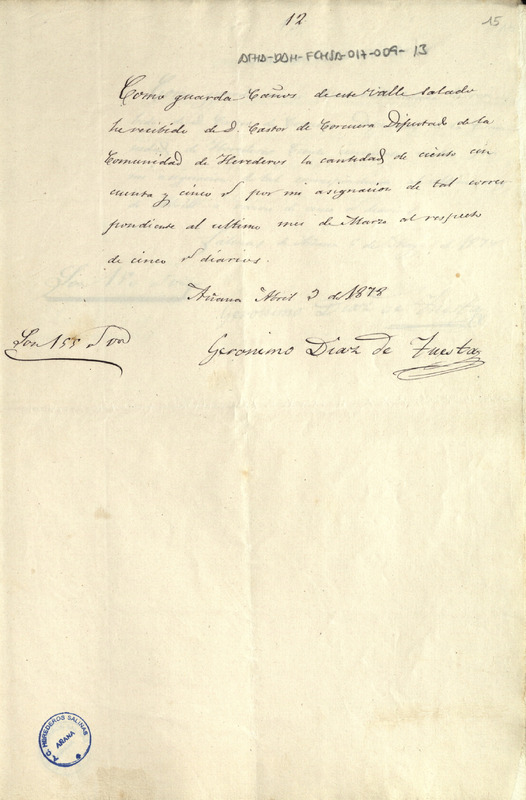 12
15
ATHA-DAH-FCHSA-017-009-13
Como guarda Caños de este Valle Salado
he recibido de D. Castor de Corcuera Diputado de la
Comunidad de Herederos la cantidad de ciento cin
cuenta y cinco rs por mi asignacion de tal corres
pondiente al ultimo mes de Marzo al respecto
de cinco rs diarios.
Añana Abril 3 de 1878
Son 155 rs vn
Geronimo Diaz de Tuesta
A.C. HEREDEROS SALINAS
AÑANA